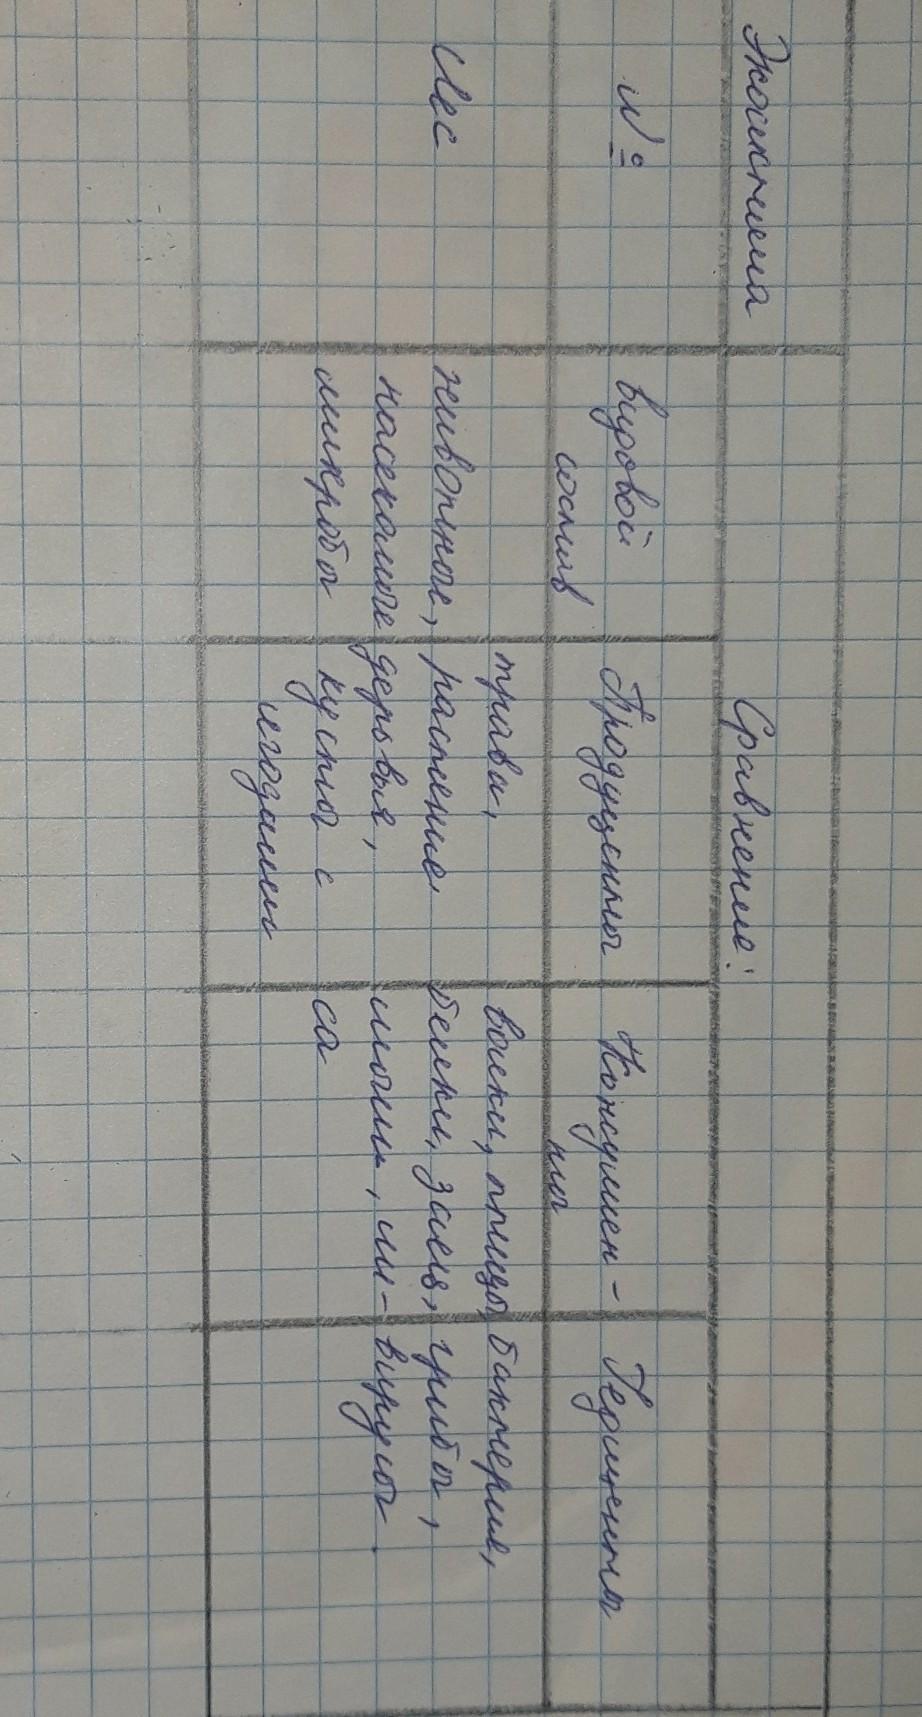 Экосистема
Сравнение:
№
видовой
состав
Продуценты
Консумен-
ты
Редуценты
Лес
животные,
насекомые
микробы
трава,
растение
деревья,
кусты с
ягодами
волки, птицы,
белки, заяц,
мыши, ли-
са
бактерии,
грибы,
вирусы.